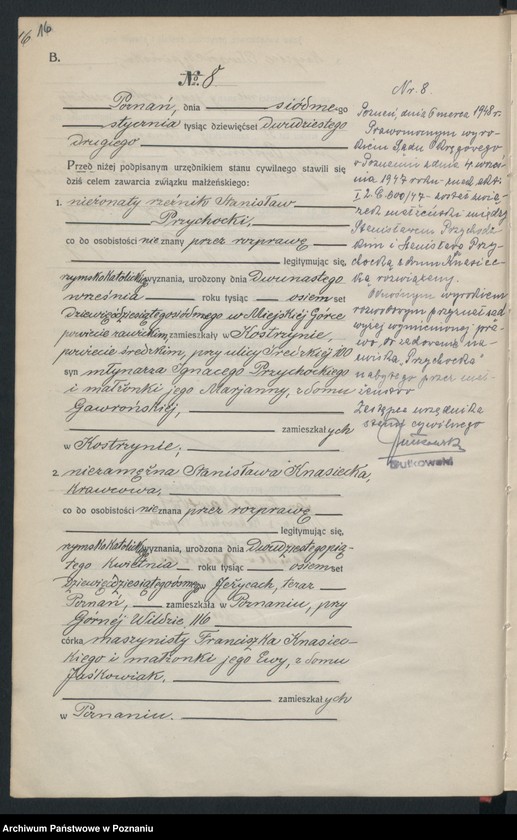 16 16
B.
№ 8
Poznań, dnia siódmego
stycznia tysiąc dziewięćset dwudziestego
drugiego
Przed niżej podpisanym urzędnikiem stanu cywilnego stawili się
dziś celem zawarcia związku małżeńskiego:
1. nieżonaty rzeźnik Stanisław
Przychocki,
co do osobistości nieznany przez rozprawę
legitymując się,
rzymsko katolick wyznania, urodzony dnia dwunastego
września roku tysiąc osiemset
dziewięćdziesiątego siódmego w Miejskiej Górce
powiecie rawickim, zamieszkały w Kostrzynie,
powiecie średzkim, przy ulicy Średzkiej 100
syn młynarza Ignacego Przychockiego
i małżonki jego Marjanny, z domu
Gawrońskiej,
zamieszkałych
w Kostrzynie;
2. niezamężna Stanisława Knasiecka,
krawcowa,
co do osobistości nieznana przez rozprawę
legitymując się,
rzymsko katolick wyznania, urodzona dnia dwudziestego pią-
tego kwietnia roku tysiąc osiemset
dziewięćdziesiątego w Jeżycach, teraz
Poznań, zamieszkała w Poznaniu, przy
Górnej Wildzie 116
córka maszynisty Franciszka Knasiec-
kiego i małżonki jego Ewy, z domu
Jaśkowiak,
zamieszkałych
w Poznaniu.
Nr. 8.
Poznań, dnia 6 marca 1948 r.
Prawomocnym wyro-
kiem Sądu Okręgowego
w Poznaniu z dnia 4 wrześ-
nia 1947 roku
został zwią-
zek małżeński między
Stanisławem Przychoc-
kim i Stanisławą Przy-
chocką z domu Knasiec-
ką rozwiązany.
wyrokiem
rozwodowym przyznał sąd
wyżej wymienionej pra-
wo do zachowania na-
zwiska "Przychocka"
nabytego przez mał-
żeństwo
Zastępca urzędnika
stanu cywilnego
Rutkowski
Archiwum Państwowe w Poznaniu